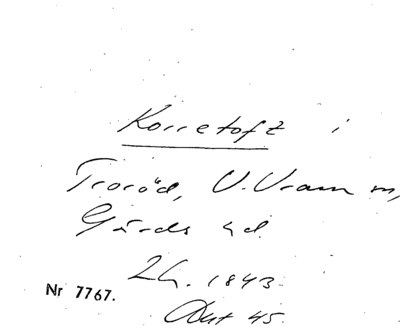 Korretoft i
Troröd, V. Vram m,
Gärds hd
2h. 1843
Nr 7767.
Akt 45